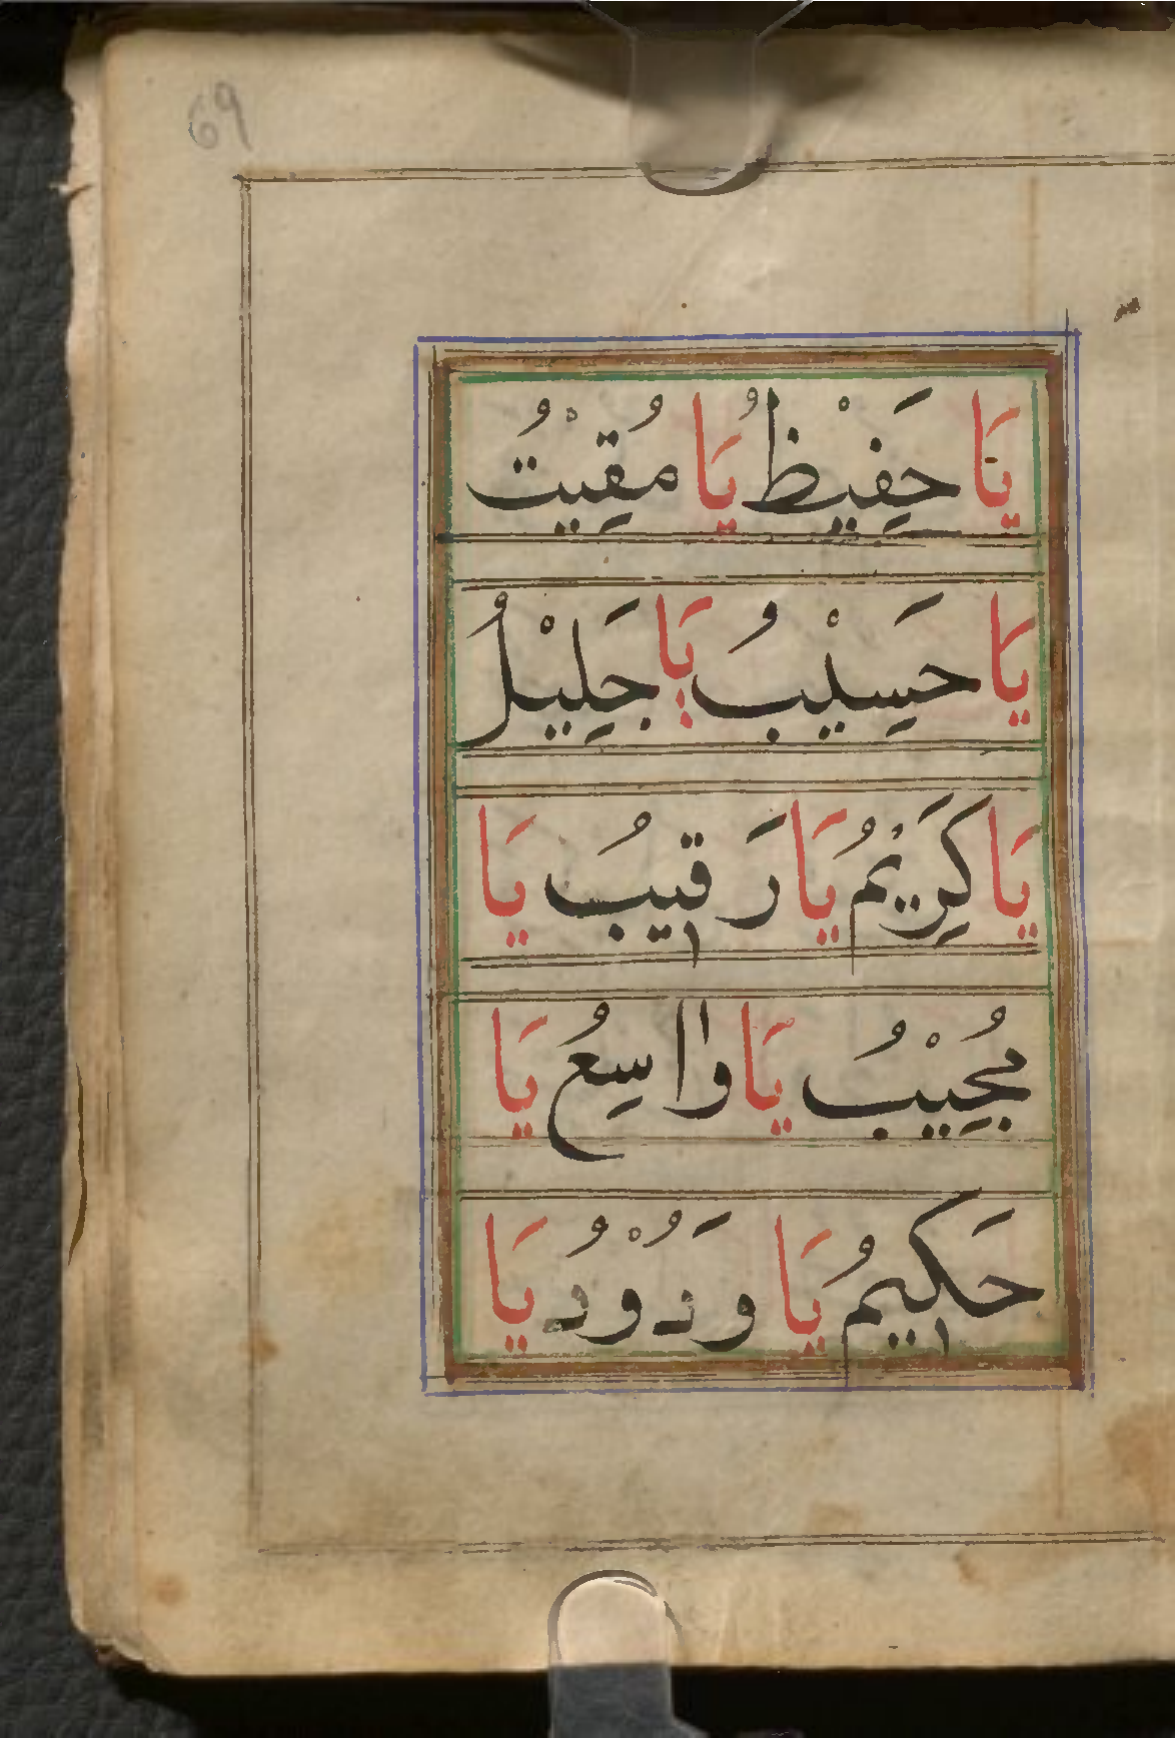 69
يَا حَفِيْظُ يَا مُقِيْتُ
يَا حَسِيْبُ يَا جَلِيْلُ
يَا كَرِيْمُ يَا رَقيبُ يَا
مُجِيْبُ يَا وااسِعُ يَا
حَكيمُ يَا وَدُوْدُ يَا